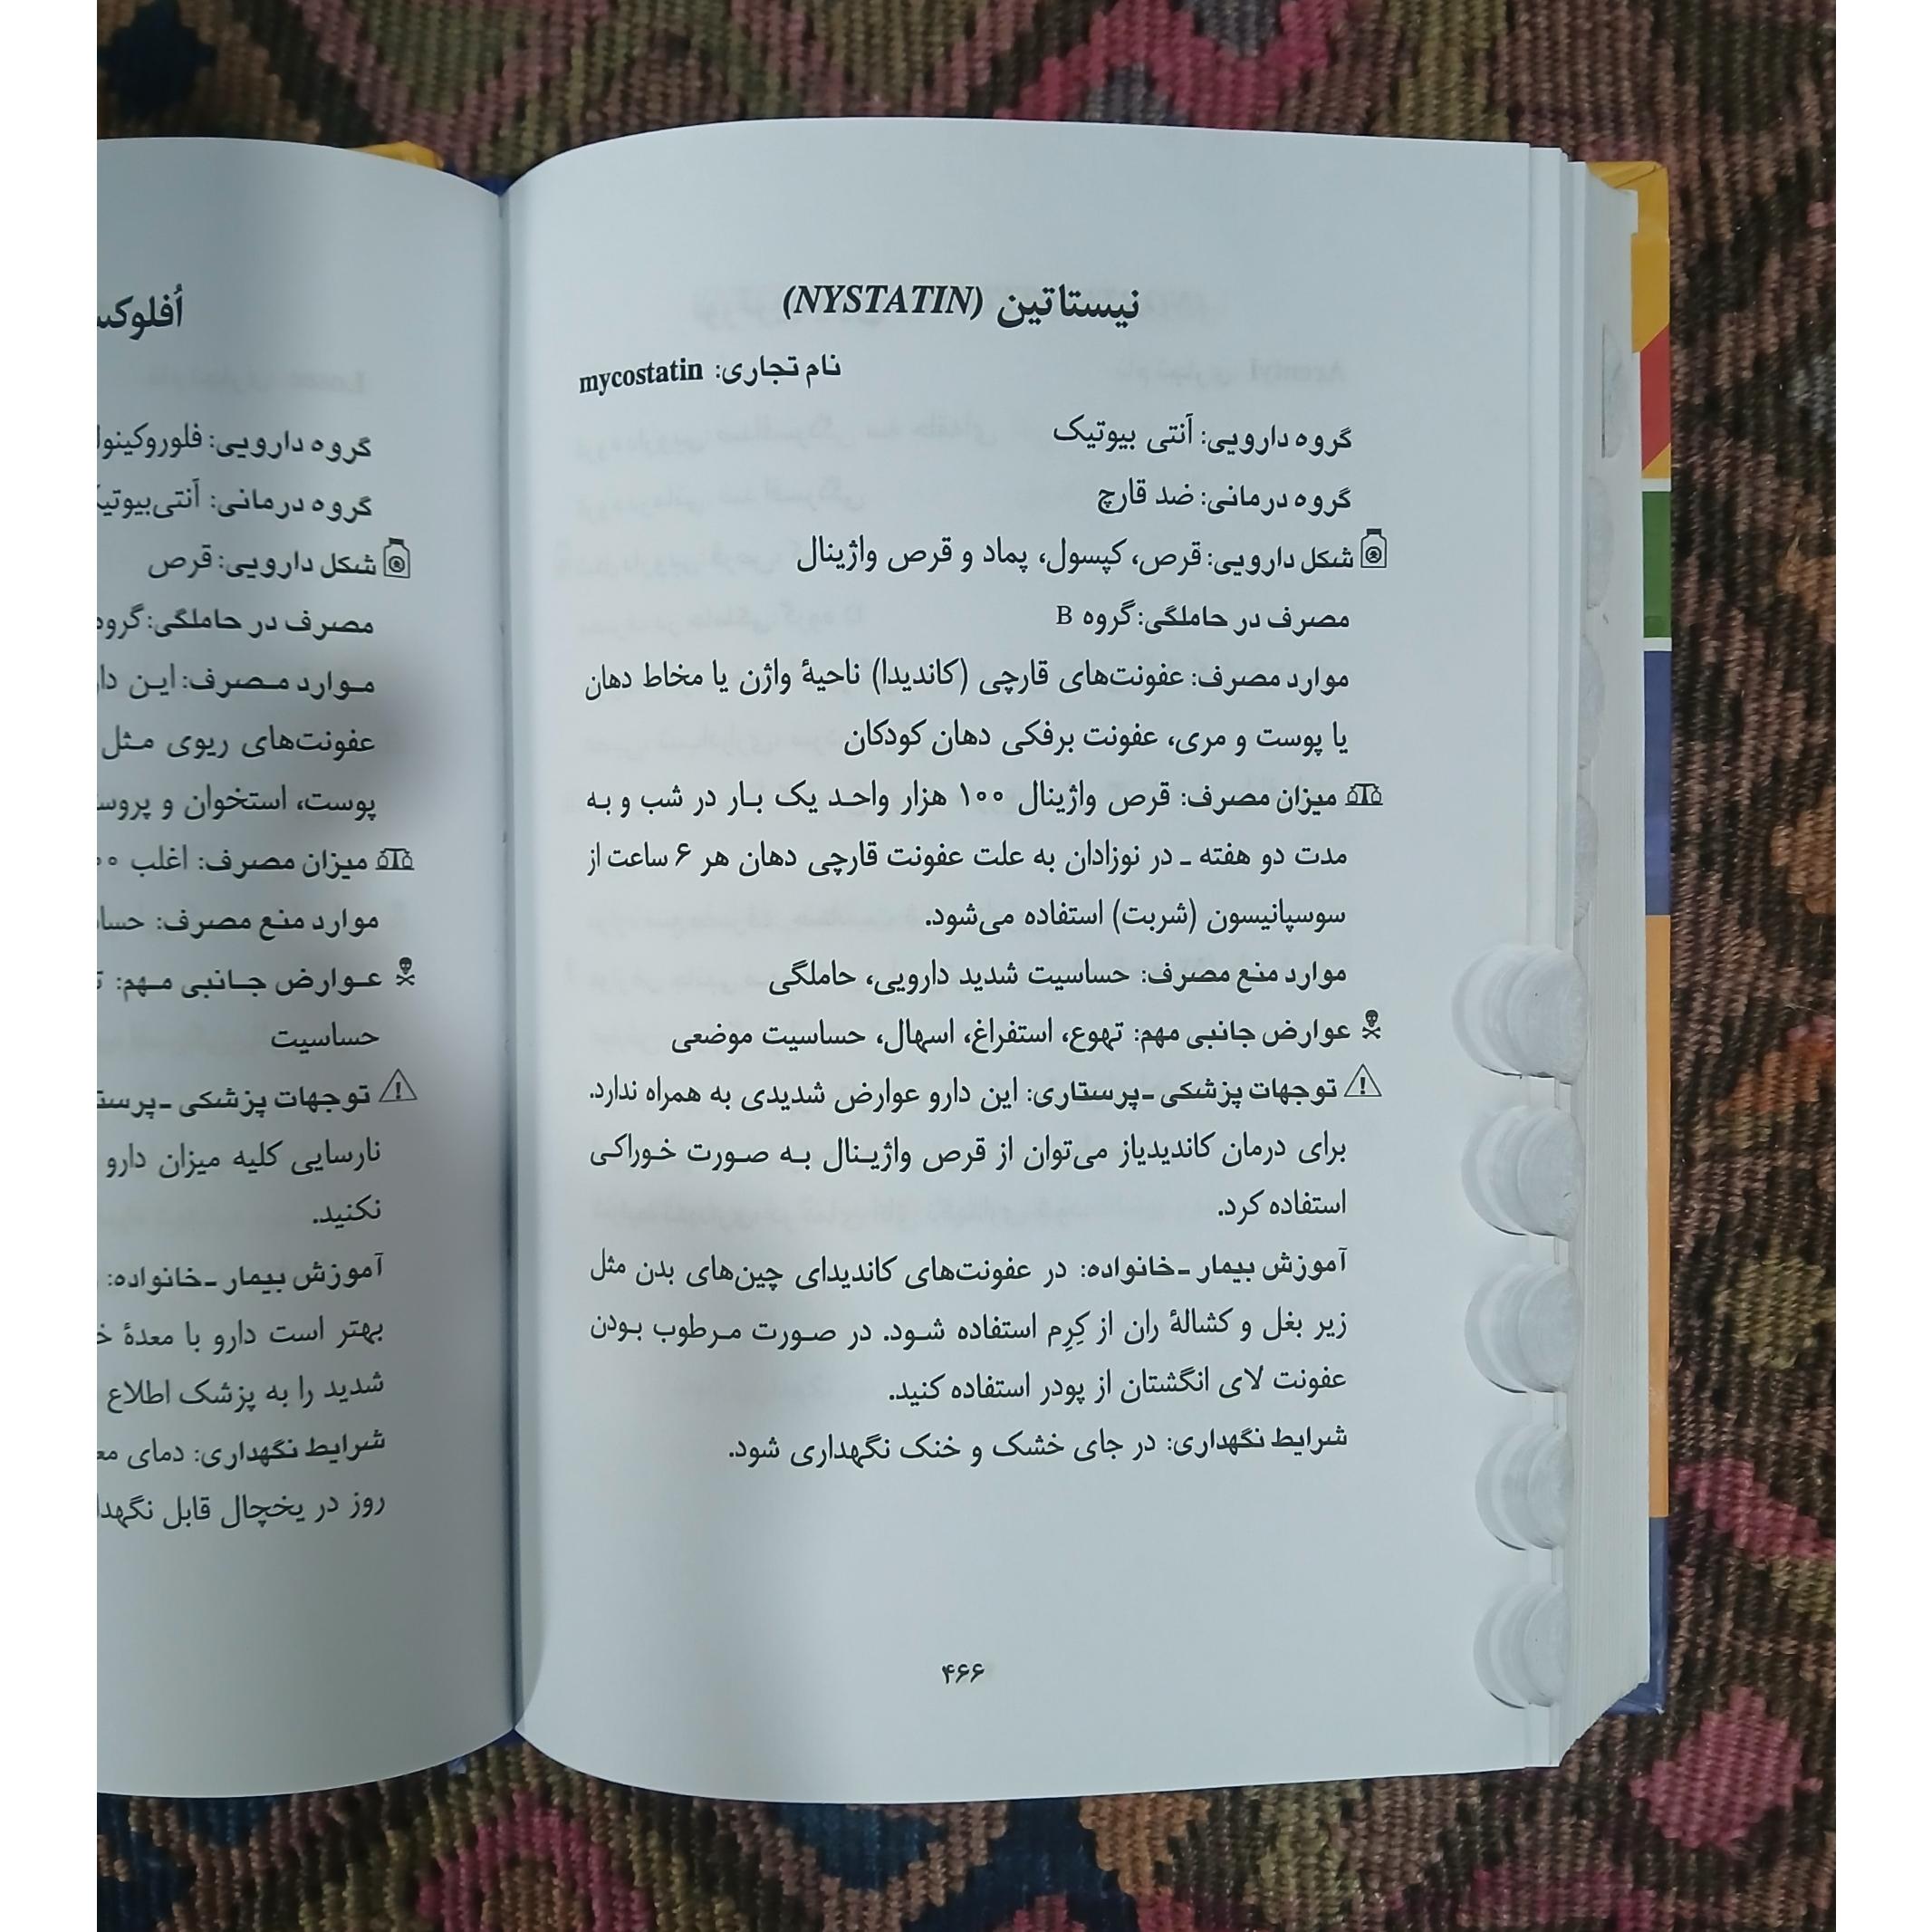 نیستاتین (NYSTATIN)
نام تجاری: mycostatin
گروه دارویی: آنتی بیوتیک
گروه درمانی: ضد قارچ
شکل دارویی: قرص، کپسول، پماد و قرص واژینال
مصرف در حاملگی: گروه B
موارد مصرف: عفونت‌های قارچی (کاندیدا) ناحیهٔ واژن یا مخاط دهان
یا پوست و مری، عفونت برفکی دهان کودکان
میزان مصرف: قرص واژینال ۱۰۰ هزار واحد یک بار در شب و به
مدت دو هفته ـ در نوزادان به علت عفونت قارچی دهان هر ۶ ساعت از
سوسپانیسون (شربت) استفاده می‌شود.
موارد منع مصرف: حساسیت شدید دارویی، حاملگی
عوارض جانبی مهم: تهوع، استفراغ، اسهال، حساسیت موضعی
توجهات پزشکی ـ پرستاری: این دارو عوارض شدیدی به همراه ندارد.
برای درمان کاندیدیاز می‌توان از قرص واژینال به صورت خوراکی
استفاده کرد.
آموزش بیمار ـ خانواده: در عفونت‌های کاندیدای چین‌های بدن مثل
زیر بغل و کشالهٔ ران از کِرِم استفاده شود. در صورت مرطوب بودن
عفونت لای انگشتان از پودر استفاده کنید.
شرایط نگهداری: در جای خشک و خنک نگهداری شود.
۴۶۶
گروه دارویی:
گروه درمانی:
شکل دارویی: قرص
مصرف در حاملگی:
موارد مصرف: این
عفونت‌های ریوی مثل
پوست، استخوان و
میزان مصرف: اغلب
موارد منع مصرف:
عوارض جانبی مهم:
حساسیت
توجهات پزشکی ـ
نارسایی کلیه میزان دارو
نکنید.
آموزش بیمار ـ خانواده:
بهتر است دارو با معدهٔ
شدید را به پزشک اطلاع
شرایط نگهداری: دمای
روز در یخچال قابل